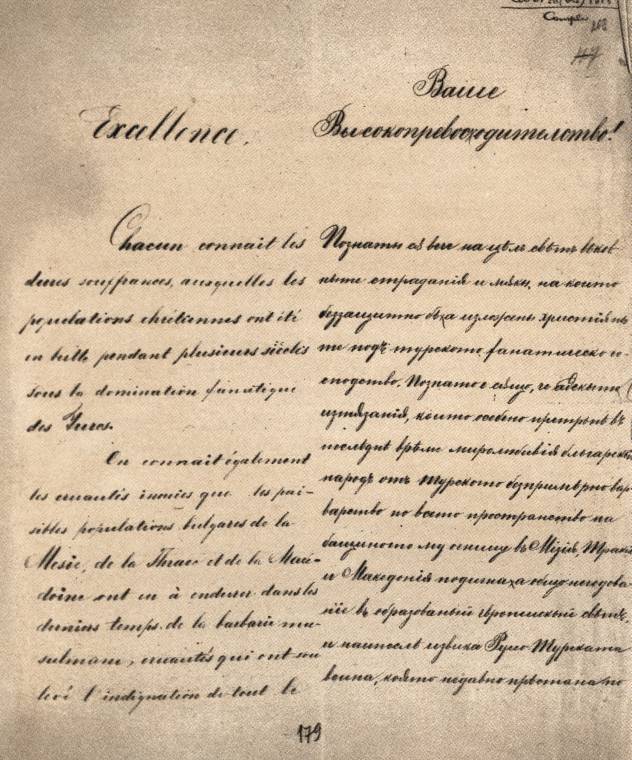 Excellence.
Chacun connait les
dures souffrances, auxquelles les
populations chrétiennes ont été
en butte pendant plusieurs siècles
sous la domination fanatique
des Turcs.
On connait également
les cruautés inouies que les pai-
sibles populations bulgares de la
Mésie, de la Thrace et de la Macé-
doine ont eu à endurer dans les
derniers temps de la barbarie mu-
sulmane, cruautés qui ont sou
levé l'indignation de tout le
Ваше
Высокопревосходителство!
Познаты сѫ вече на цѣлъ свѣтъ вѣков
ныте страданія и мѫкы, на които
беззащитно бѣха изложены христіяны
те подъ турското фанатическо го-
сподство. Познато е сѫщо, че адскыте
изтязанія, които особено претръпѣ въ
послѣдне врѣме миролюбивія българскы
народъ отъ турското безпримѣрно вар-
варство по всето пространство на
бащиното му огнище въ Мізія, Тракія
и Македонія подигнаха общо негодова-
ніе въ образованый европейскый свѣтъ,
и наипослѣ извика Руско-Турската
война, която недавно прѣстана по
179